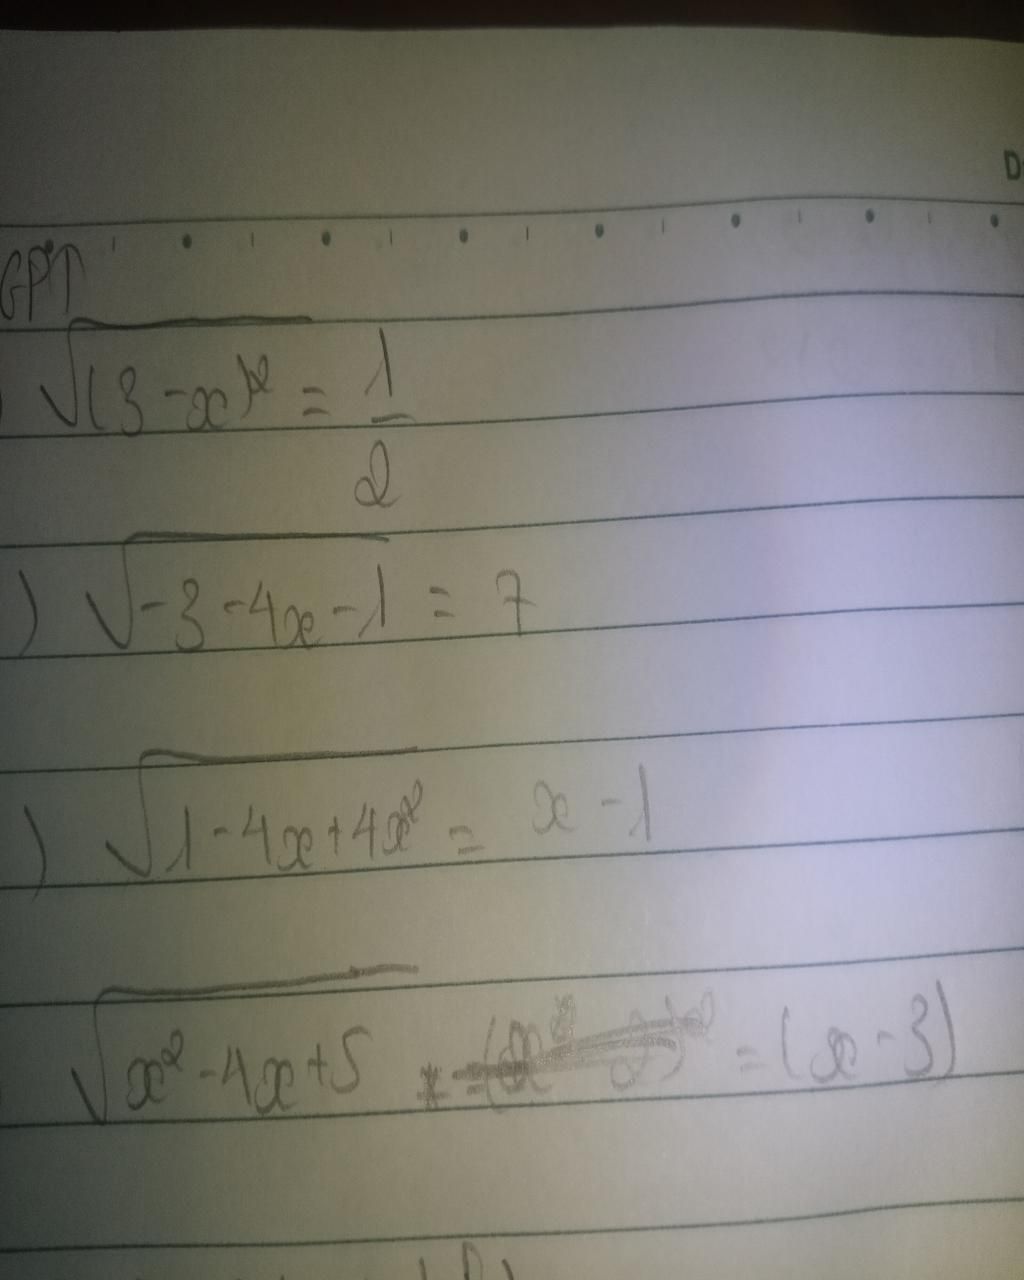 D
GPT
) √(3-x)² = 1/2
) √-3-4x-1 = 7
) √1-4x+4x² = x-1
√x²-4x+5 = (x-3)